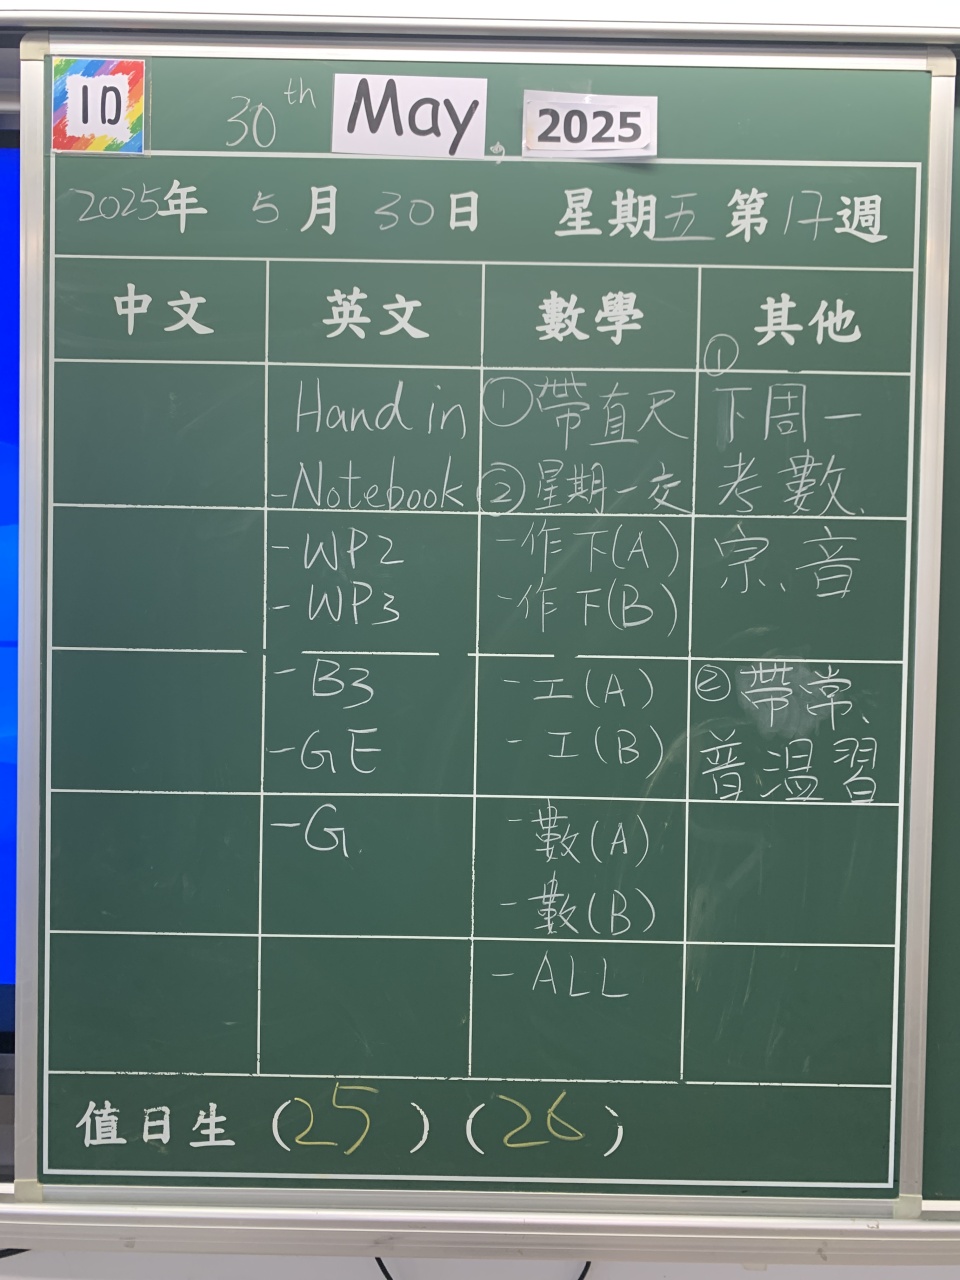 1D
30th May, 2025
2025年 5月30日 星期五 第17週
中文
英文
數學
其他
Hand in
-Notebook
-WP2
-WP3
-B3
-GE
-G
①帶直尺
②星期一交
-作下(A)
-作下(B)
-工(A)
-工(B)
-數(A)
-數(B)
-ALL
①
下周一
考數、
宗、音
②帶常、
普溫習
值日生 (25) (26)